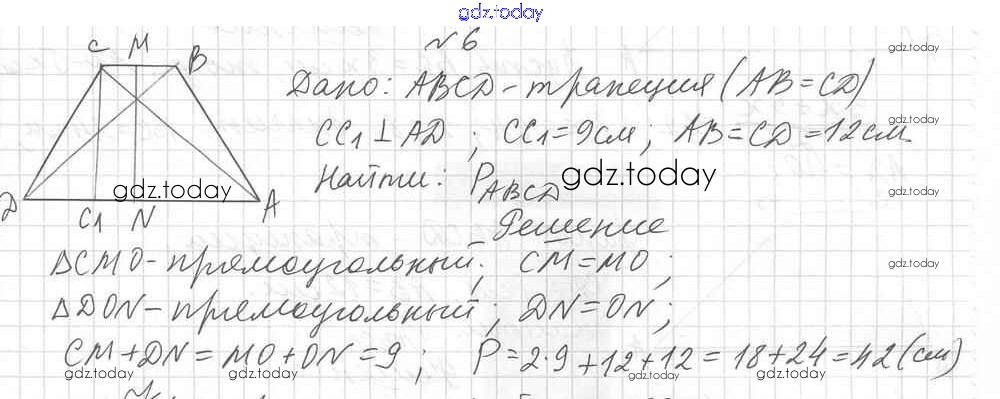 gdz.today
№6
C M B
gdz.today
Дано: ABCD - трапеция (AB = CD)
gdz.today
CC1 ⊥ AD ; CC1 = 9см ; AB = CD = 12см
gdz.today
Найти: P ABCD
gdz.today
gdz.today
D C1 N A
Решение
ΔCMO - прямоугольный; CM = MO ;
gdz.today
ΔDON - прямоугольный ; DN = ON ;
CM + DN = MO + ON = 9 ; P = 2·9 + 12 + 12 = 18 + 24 = 42 (см)
gdz.today gdz.today gdz.today gdz.today